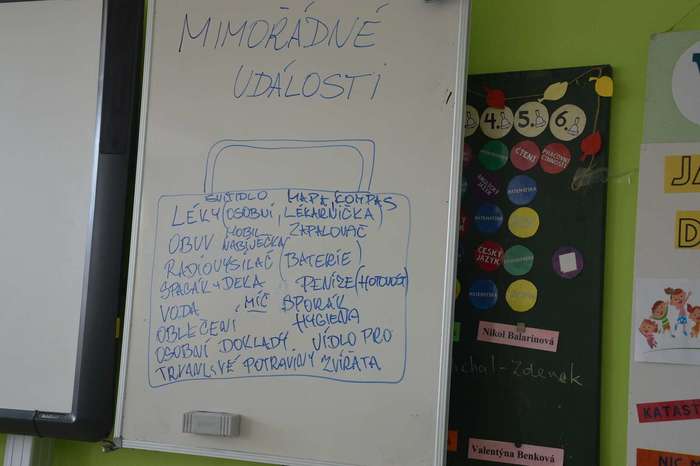 MIMOŘÁDNÉ
UDÁLOSTI
SVÍTIDLO MAPA, KOMPAS
LÉKY (OSOBNÍ, LÉKARNIČKA)
OBUV MOBIL ZAPALOVAČ
NABÍJEČKA
RADIOVYSILAČ (BATERIE)
SPACÁK, DEKA PENÍZE (HOTOVOST)
VODA MÍČ SPORÁK
OBLEČENÍ HYGIENA
OSOBNÍ DOKLADY. JÍDLO PRO
TRVANLIVÉ POTRAVINY ZVÍŘATA
4. 5. 6.
ČTENÍ
PRACOVNÍ ČINNOSTI
ANGLICKÝ JAZYK
MATEMATIKA
MATEMATIKA
ČESKÝ JAZYK
MATEMATIKA
Nikol Balarinová
Michal-Zdeněk
Valentýna Benková
JA
D
KATAST